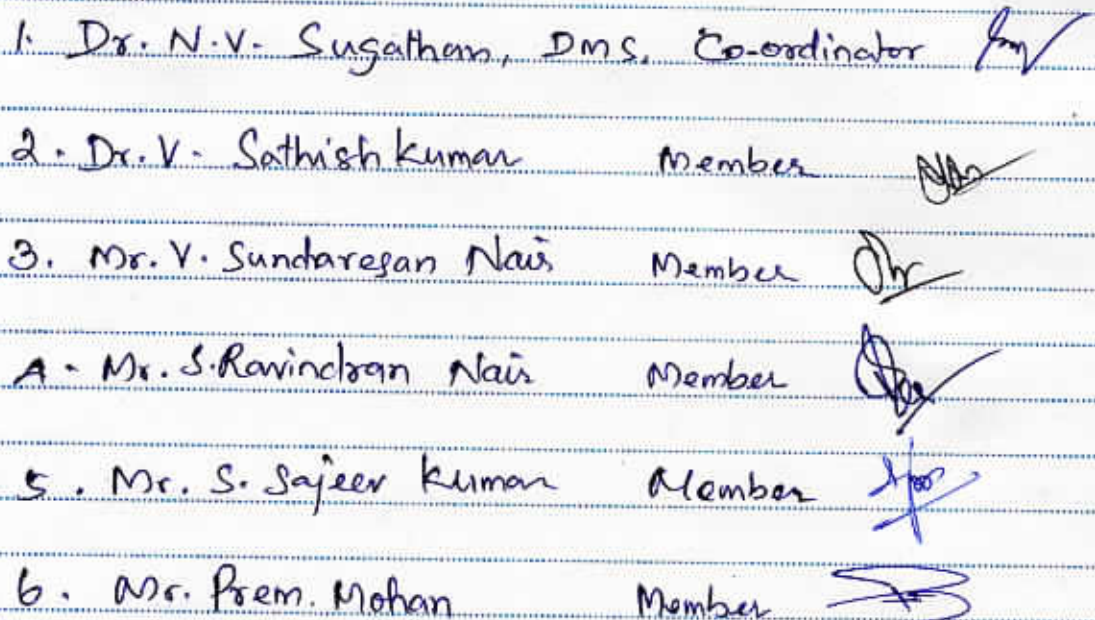 1. Dr. N.V. Sugathan, DMS, Co-ordinator
2. Dr. V. Sathish kumar Member
3. Mr. V. Sundaresan Nair Member
4. Mr. S. Ravindran Nair Member
5. Mr. S. Sajeev Kumar Member
6. Mr. Prem. Mohan Member